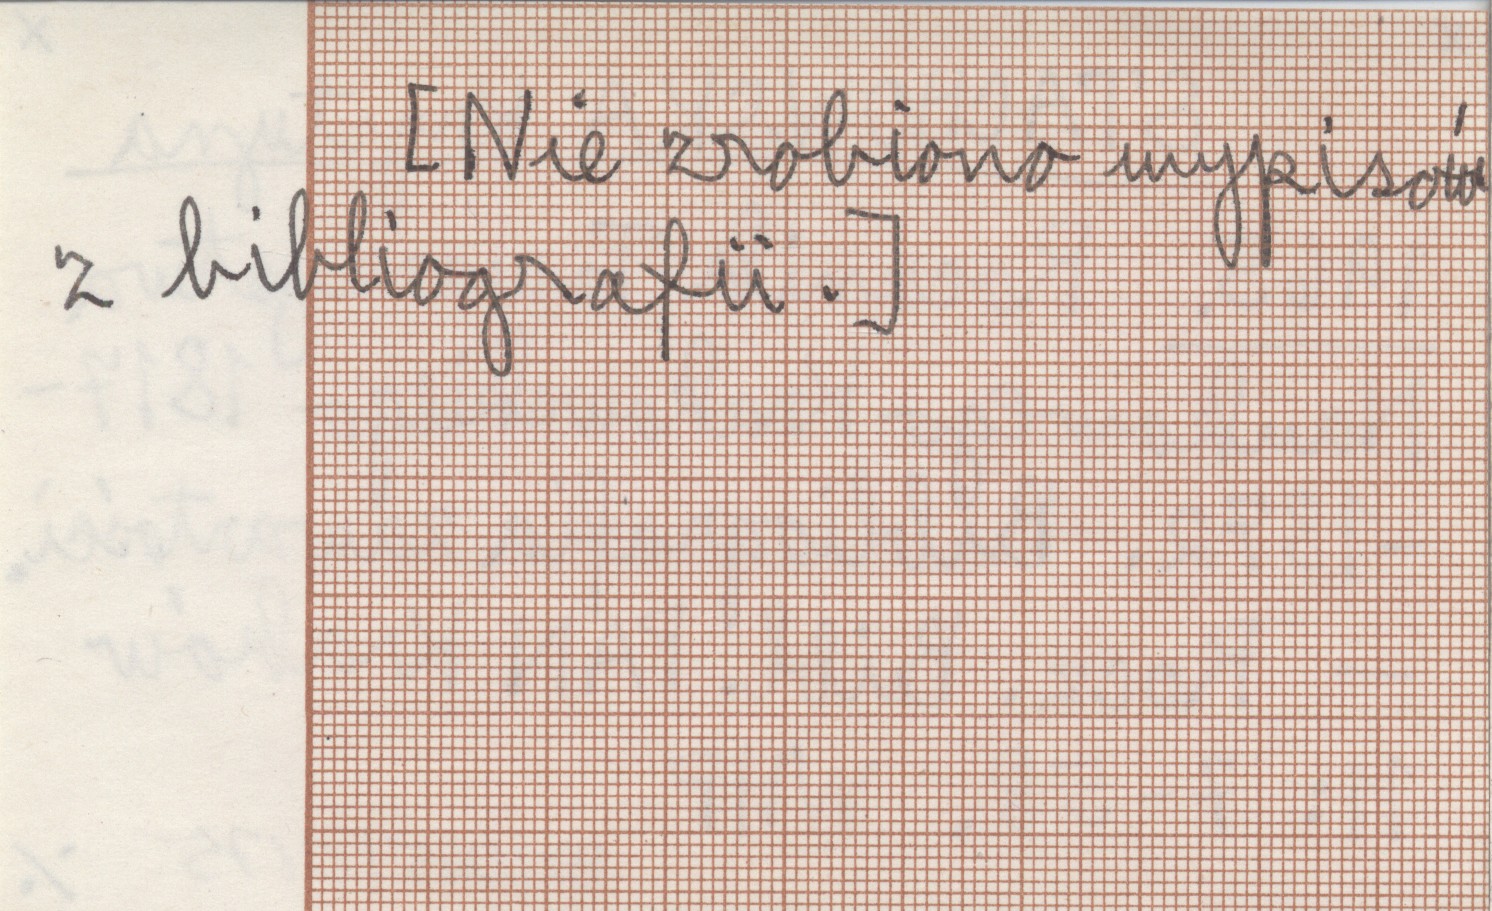 [Nie zrobiono wypisów
z bibliografii.]